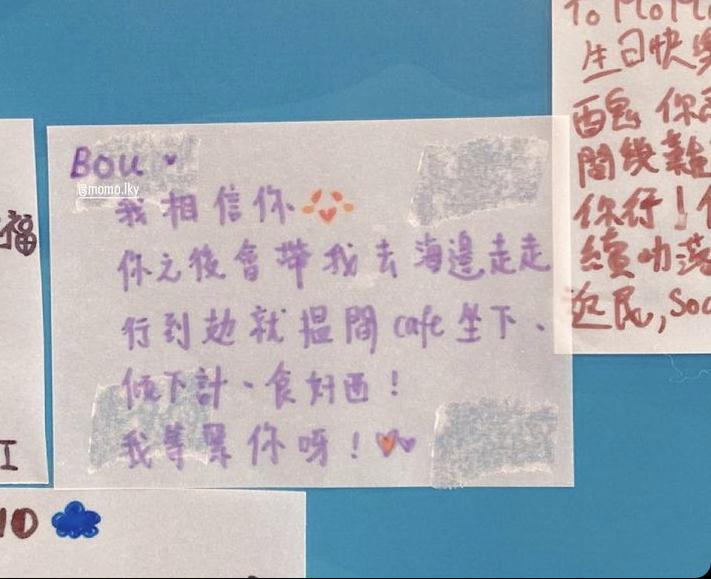 Bou
@momo.lky
我相信你
你之後會帶我去海邊走走
行到攰就搵間cafe坐下、
傾下計、食好西！
我等緊你呀！
To MoMo
生日快樂
醜 你
間幾難
你行！
續叻落
近民, Soc
福
江
10